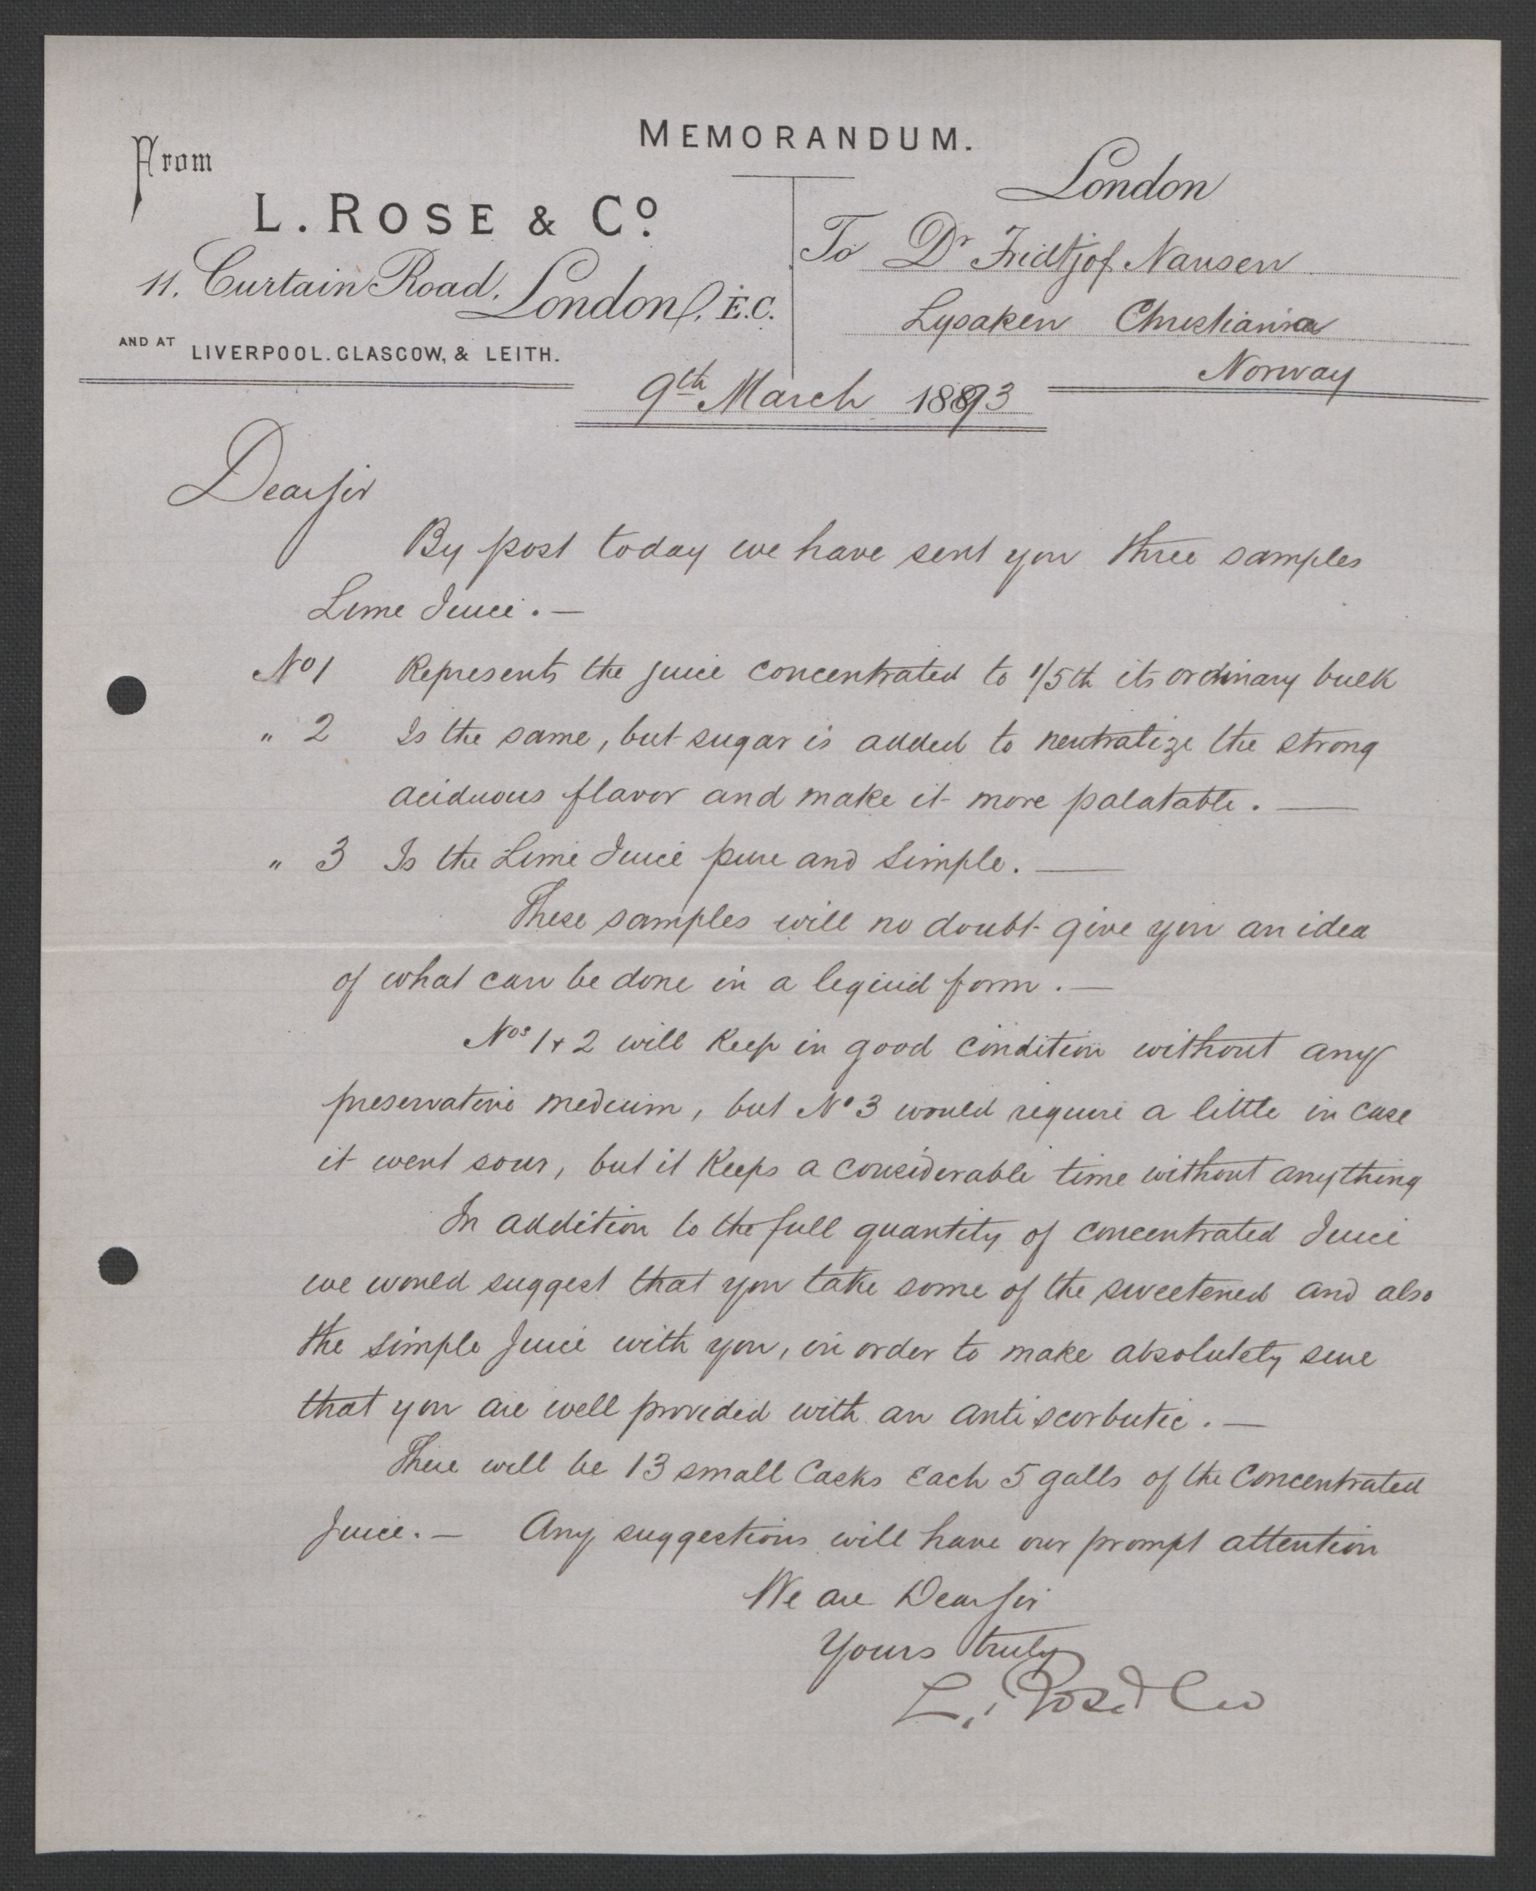 MEMORANDUM.
From
L. ROSE & Co.
11, Curtain Road, London, E.C.
AND AT LIVERPOOL. GLASGOW, & LEITH.
London
To Dr Fridtjof Nansen
Lysaken Christiania
Norway
9th March 1893
Dear Sir
By post today we have sent you three samples
Lime Juice. —
No 1 Represents the juice concentrated to 1/5th its ordinary bulk
" 2 Is the same, but sugar is added to neutralize the strong
aciduous flavor and make it more palatable. —
" 3 Is the Lime Juice pure and simple. —
These samples will no doubt give you an idea
of what can be done in a lequid form. —
Nos 1 + 2 will keep in good condition without any
preservative medium, but No 3 would require a little in case
it went sour, but it keeps a considerable time without anything
In addition to the full quantity of concentrated Juice
we would suggest that you take some of the sweetened and also
the simple Juice with you, in order to make absolutely sure
that you are well provided with an anti scorbutic. —
There will be 13 small Casks Each 5 galls of the Concentrated
Juice. — Any suggestions will have our prompt attention
We are Dear Sir
Yours truly
L. Rose & Co